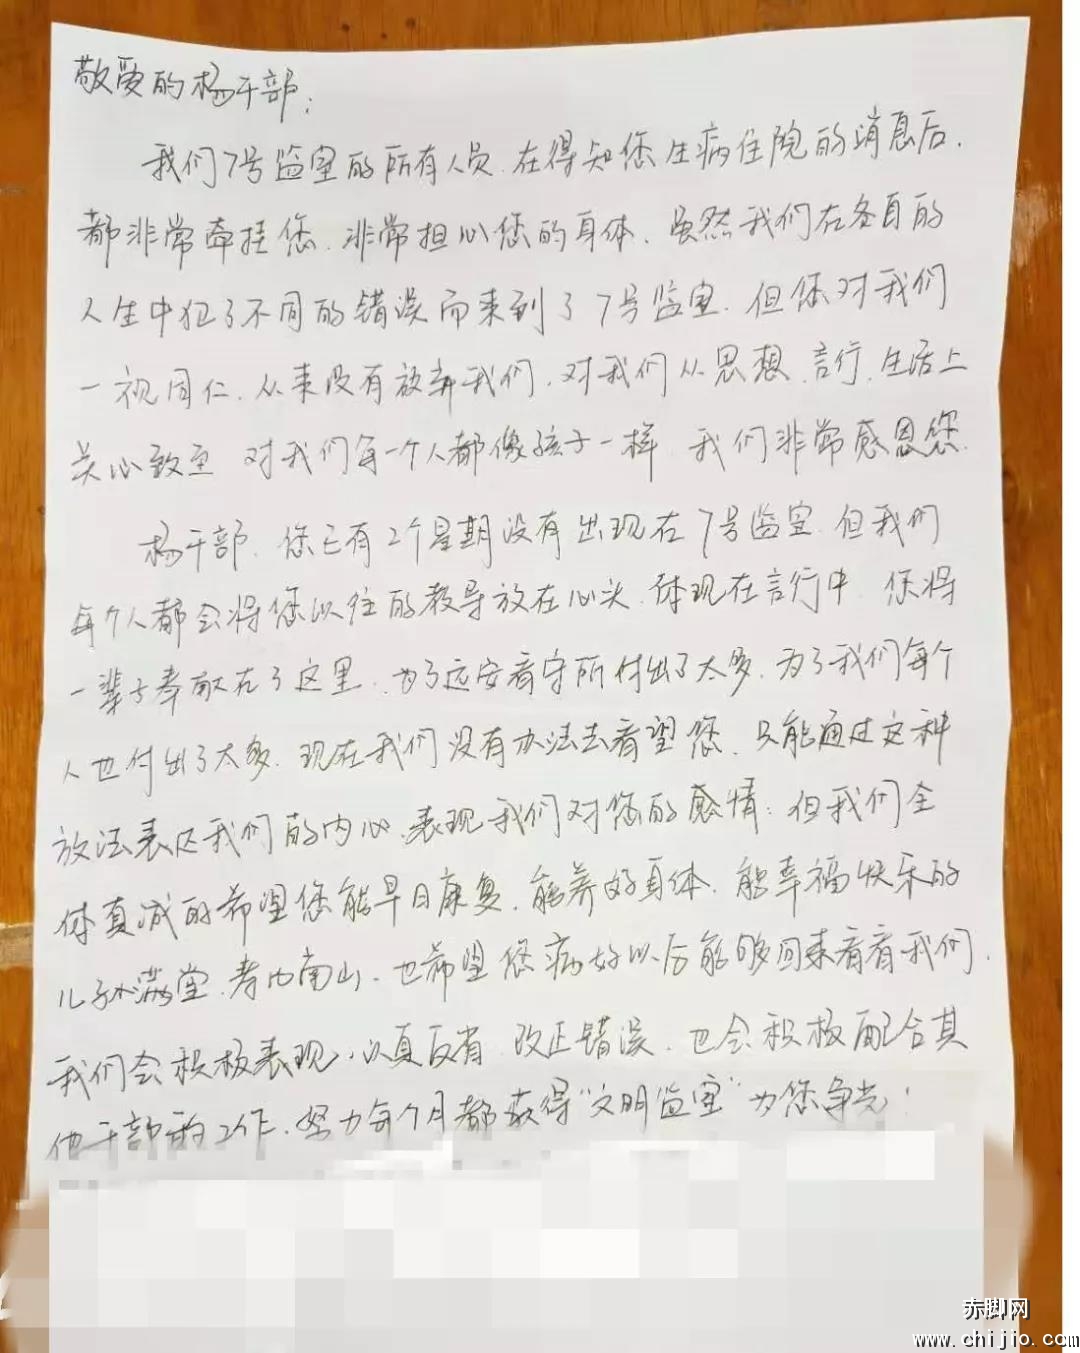 敬爱的杨干部：
我们7号监室的所有人员.在得知您生病住院的消息后.
都非常牵挂您.非常担心您的身体.虽然我们在各自的
人生中犯了不同的错误而来到了7号监室.但您对我们
一视同仁.从来没有放弃我们.对我们从思想.言行.生活上
关心致至 对我们每一个人都像孩子一样.我们非常感恩您.
杨干部.您已有2个星期没有出现在7号监室.但我们
每个人都会将您以往的教导放在心头.体现在言行中.您将
一辈子奉献在了这里.为了远安看守所付出了太多.为了我们每个
人也付出了太多.现在我们没有办法去看望您.只能通过这种
放法表达我们的内心.表现我们对您的感情.但我们全
体真诚的希望您能早日康复.能养好身体.能幸福快乐的
儿孙满堂.寿比南山.也希望您病好以后能够回来看看我们.
我们会积极表现.认真反省.改正错误.也会积极配合其
他干部的工作.努力每个月都获得“文明监室”为您争光！
赤脚网
www.chijio.com